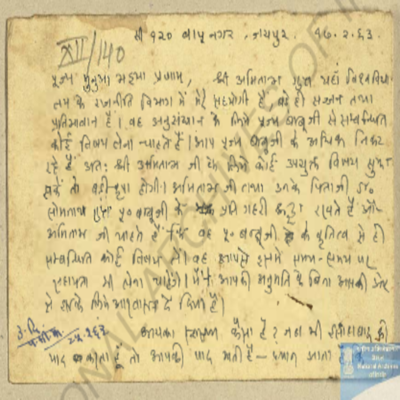 सी १२० बापू नगर, जयपुर १७.२.६३
XII/140
पूज्य मुनुआ भइया प्रणाम, श्री अमिताभ गुप्त यहां विश्वविद्या-
लय के राजनीति विभाग में मेरे सहयोगी हैं, बड़े ही सज्जन तथा
प्रतिभावान हैं। वह अनुसंधान के लिये पूज्य बाबूजी से सम्बन्धित
कोई विषय लेना चाहते हैं। आप पूज्य बाबूजी के अधिक निकट
रहे हैं अतः श्री अमिताभ जी के लिये कोई उपयुक्त विषय सुझा
सकें तो बड़ी कृपा होगी। अमिताभ जी तथा उनके पिताजी डा०
सोमनाथ गुप्त पू० बाबूजी के प्रति गहरी श्रद्धा रखते हैं और
अमिताभ जी चाहते हैं कि वह पू० बाबूजी के कृतित्व से ही
सम्बन्धित कोई विषय लें। वह आपसे इसमें समय-समय पर
सहायता भी लेना चाहेंगे। मैंने आपकी अनुमति के बिना आपकी ओर
से उनके लिये आश्वासन दे दिया है।
आपका स्वास्थ्य कैसा है? जब भी
याद करता हूँ तो आपकी याद आती है — ध्यान आता